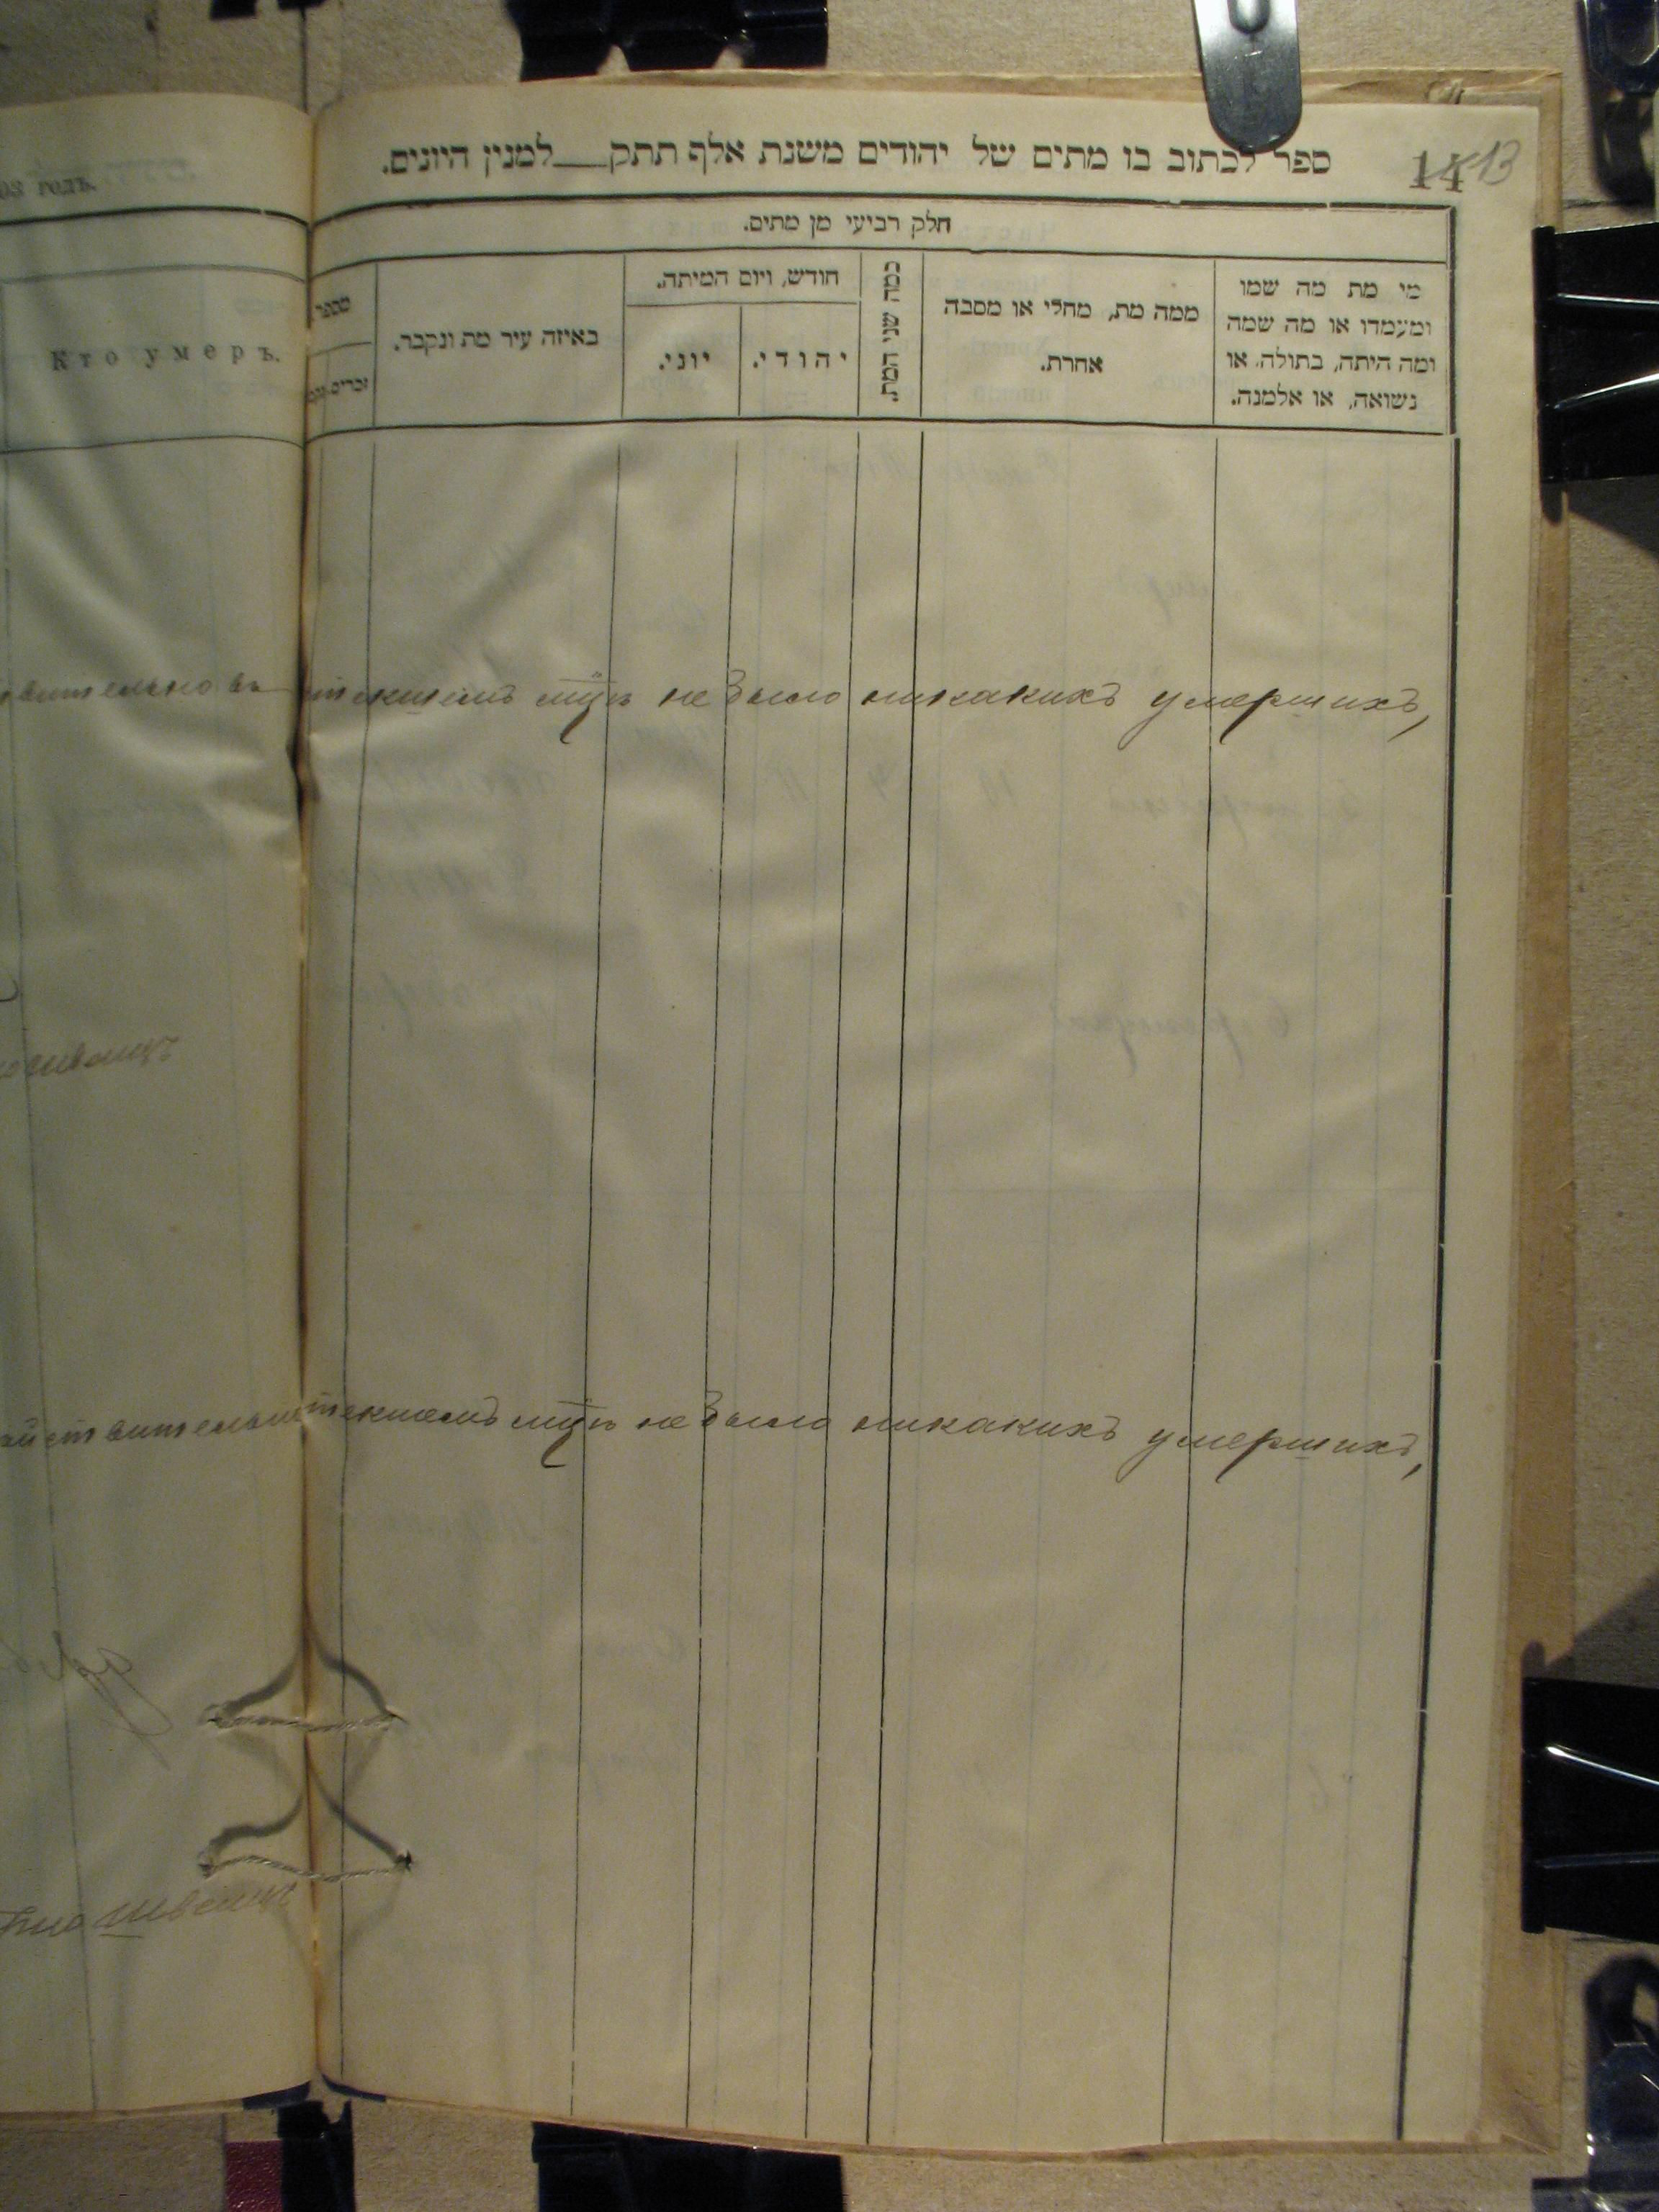 03 годъ.
Кто умеръ.
ספר לכתוב בו מתים של יהודים משנת אלף תתק___למנין היונים.
14 13
חלק רביעי מן מתים.
מי מת מה שמו
ומעמדו או מה שמה
ומה היתה, בתולה, או
נשואה, או אלמנה.
ממה מת, מחלי או מסבה
אחרת.
כמה שני המת.
חודש, ויום המיתה.
יהודי.
יוני.
באיזה עיר מת ונקבר.
מספר
זכרים
вительно въ истекшемъ м-цѣ не было никакихъ умершихъ,
йствительно истекшемъ м-цѣ не было никакихъ умершихъ,